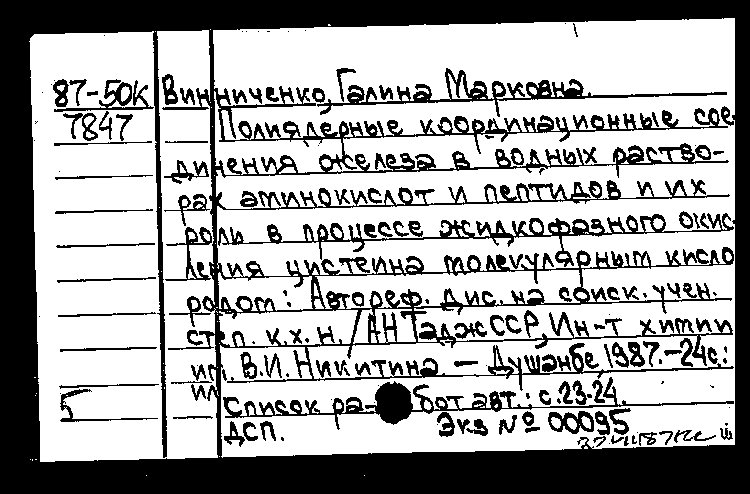 87-50К Винниченко, Галина Марковна.
7847 Полиядерные координационные сое-
динения железа в водных раство-
рах аминокислот и пептидов и их
роль в процессе жидкофазного окис-
ления цистеина молекулярным кисло
родом: Автореф. дис. на соиск. учен.
степ. к.х.н. / АН ТаджССР, Ин-т химии
им. В.И. Никитина. — Душанбе, 1987.-24с.:
ил
5 Список ра- бот авт.: с.23-24.
ДСП. Экз № 00095